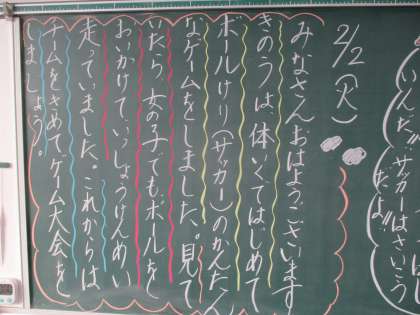 いんだ!!サッカーはさいこう
だよ!!
2/2(火)
みなさんおはようございます
きのうは、体いくではじめて
ボールけり(サッカー)のかんたん
なゲームをしました。見て
いたら、女の子でもボールを
おいかけて、いっしょうけんめい
走っていました。これからは
チームをきめてゲーム大会をし
ましょう。